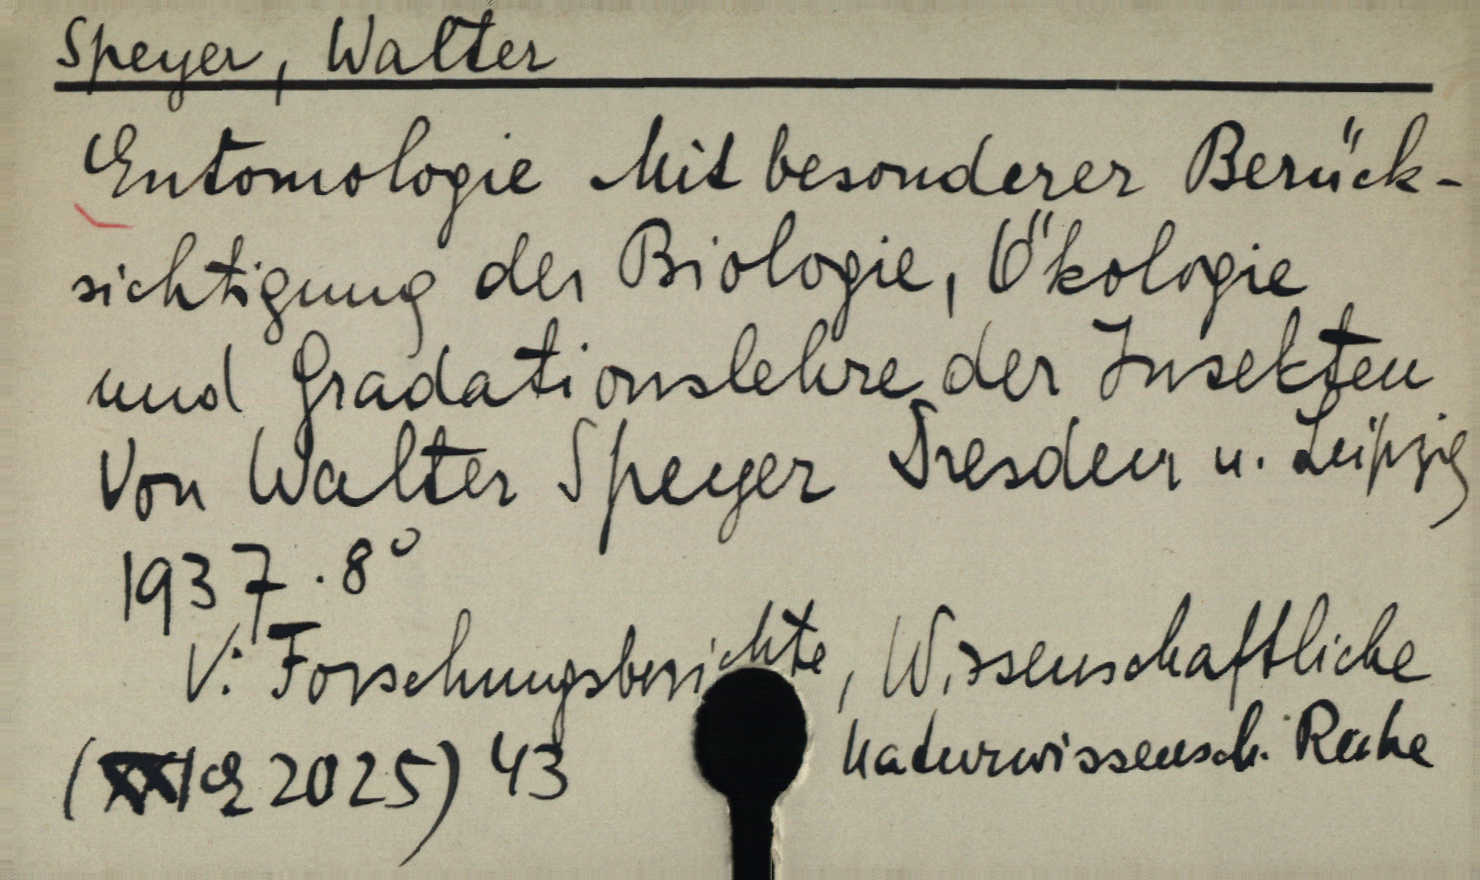 Speyer, Walter
Entomologie Mit besonderer Berück-
sichtigung der Biologie, Ökologie
und Gradationslehre der Insekten
Von Walter Speyer Dresden u. Leipzig
1937. 8°
V: Forschungsberichte, Wissenschaftliche
naturwissensch. Reihe
2025) 43